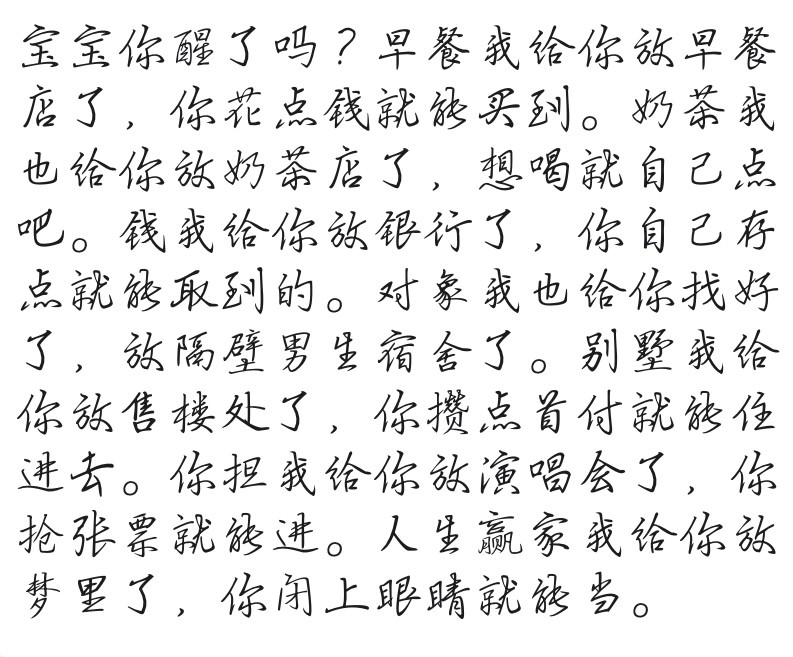 宝宝你醒了吗？早餐我给你放早餐
店了，你花点钱就能买到。奶茶我
也给你放奶茶店了，想喝就自己点
吧。钱我给你放银行了，你自己存
点就能取到的。对象我也给你找好
了，放隔壁男生宿舍了。别墅我给
你放售楼处了，你攒点首付就能住
进去。你担我给你放演唱会了，你
抢张票就能进。人生赢家我给你放
梦里了，你闭上眼睛就能当。